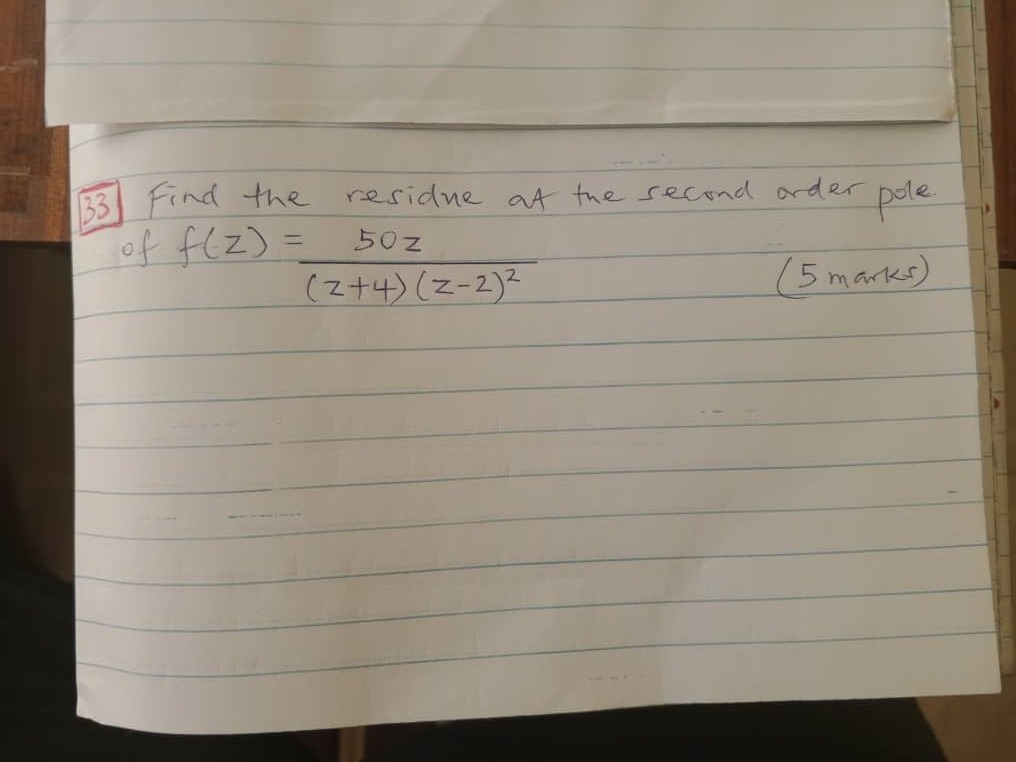 33 Find the residue at the second order pole
of f(z) = 50z
(z+4)(z-2)²
(5 marks)